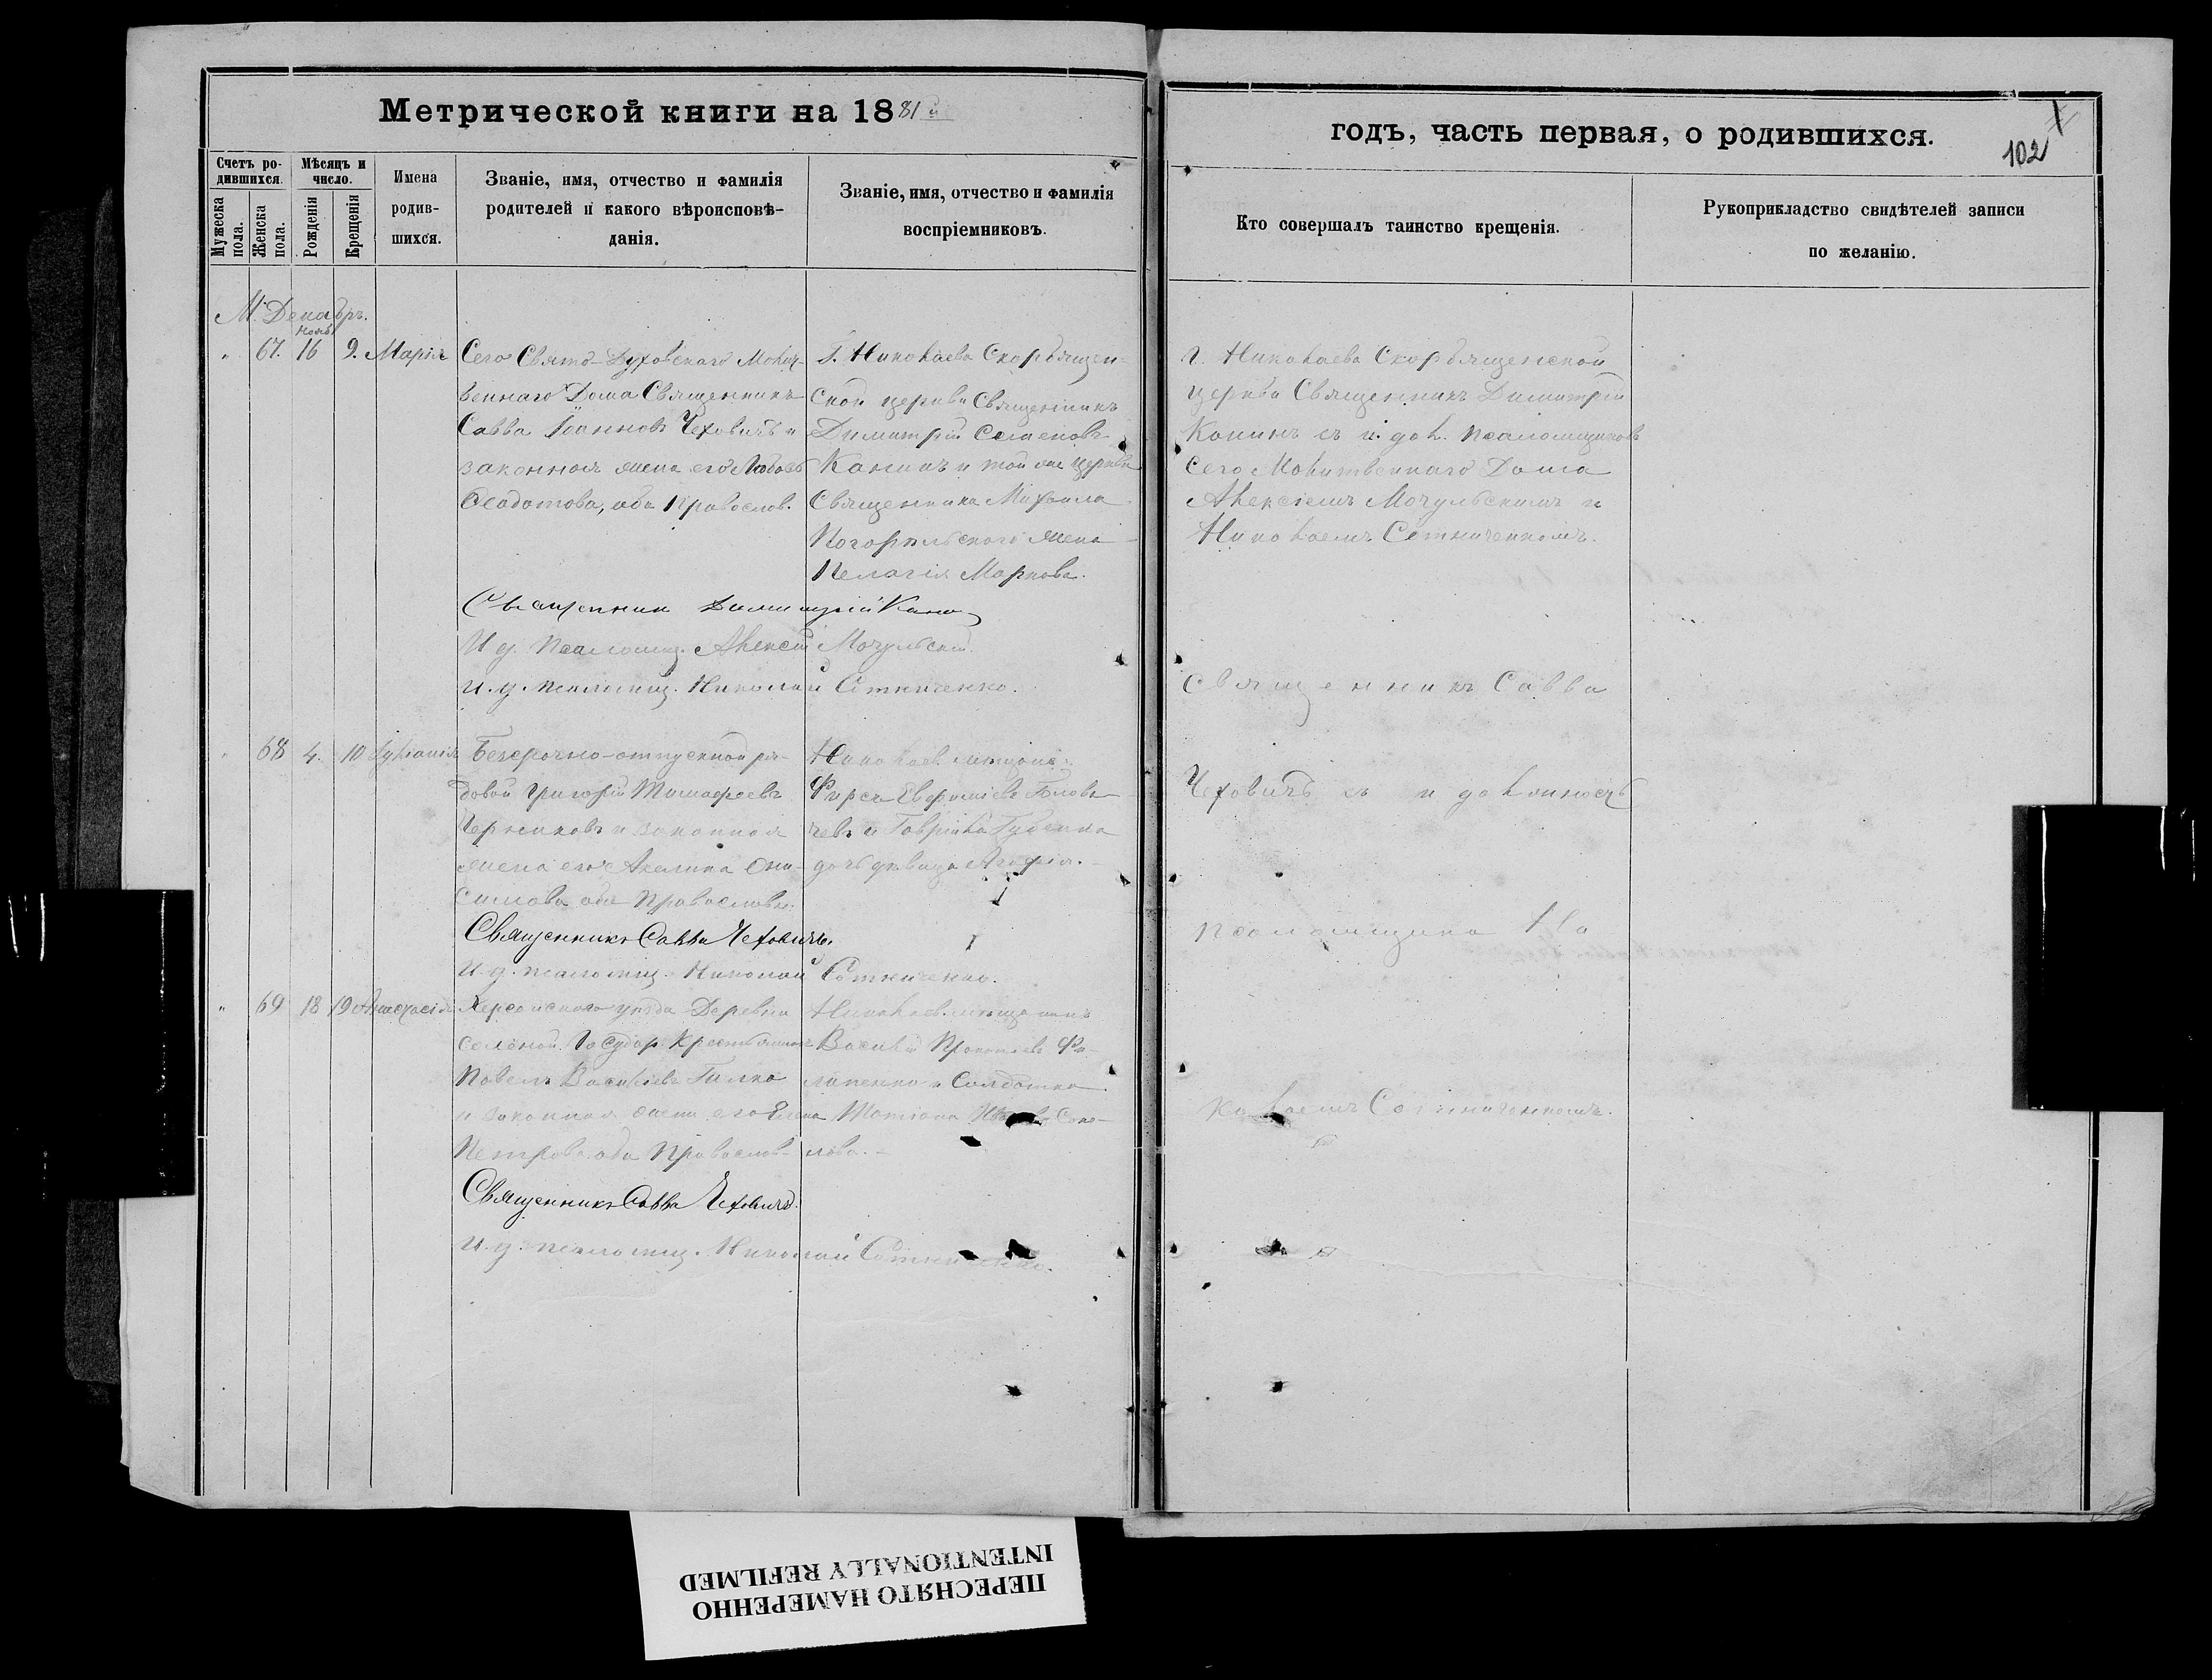 Метрической книги на 1881й
годъ, часть первая, о родившихся.
102
Счетъ родившихся.
Мѣсяцъ и число.
Имена родившихся.
Званіе, имя, отчество и фамилія родителей и какого вѣроисповѣданія.
Званіе, имя, отчество и фамилія воспріемниковъ.
Мужеска пола.
Женска пола.
Рожденія
Крещенія
Кто совершалъ таинство крещенія.
Рукоприкладство свидѣтелей записи по желанію.
М. Декабрь.
Нояб
" 67. 16 9. Марія
Сего Свято-Духовскаго Молит-
веннаго Дома Священникъ
Савва Іоанновъ Чеховичъ и
законная жена его Любовь
Феодотова, оба Православ.
Г. Николаева Скорбящен-
ской церкви Священникъ
Димитрій Семеновъ
Канинъ и той же церкви
Священника Михаила
Погорѣльскаго жена
Пелагія Маркова.
г. Николаева Скорбященской
церкви Священникъ Димитрій
Канинъ съ и. дол. псаломщиковъ
сего Молитвеннаго Дома
Алексіемъ Мочульскимъ и
Николаемъ Сотниченкомъ.
Священникъ Димитрій Канинъ
И. д. псаломщ. Алексій Мочульскій.
И. д. псаломщ. Николай Сотниченко.
" 68 4. 10 Іуліанія
Безсрочно-отпускной ря-
довой Григорій Тимофеевъ
Черниковъ и законная
жена его Акелина Они-
симова оба Православн.
Николаев. мещане:
Фирсъ Евфиміевъ
чевъ и Гавріила Губенка
дочь дѣвица Агафія.
Священникъ Савва Чеховичъ.
И. д. псаломщ. Николай Сотниченко.
Священникъ Савва
Чеховичъ съ и должность
псаломщика Ни
колаемъ Сотниченкомъ.
" 69 18 19 Анастасія
Херсонскаго уѣзда Деревни
Соленой Государ. Крестьянинъ
Павелъ Васильевъ Гилка
и законная жена его Елена
Петрова оба Православ.
Николаев. мѣщанинъ
Василій Прокопіевъ Фи-
липенко и Солдатка
Татіана Соко-
лова.
Священникъ Савва Чеховичъ.
И. д. псаломщ. Николай Сотниченко.
ПЕРЕСНЯТО НАМЕРЕННО
INTENTIONALLY REFILMED